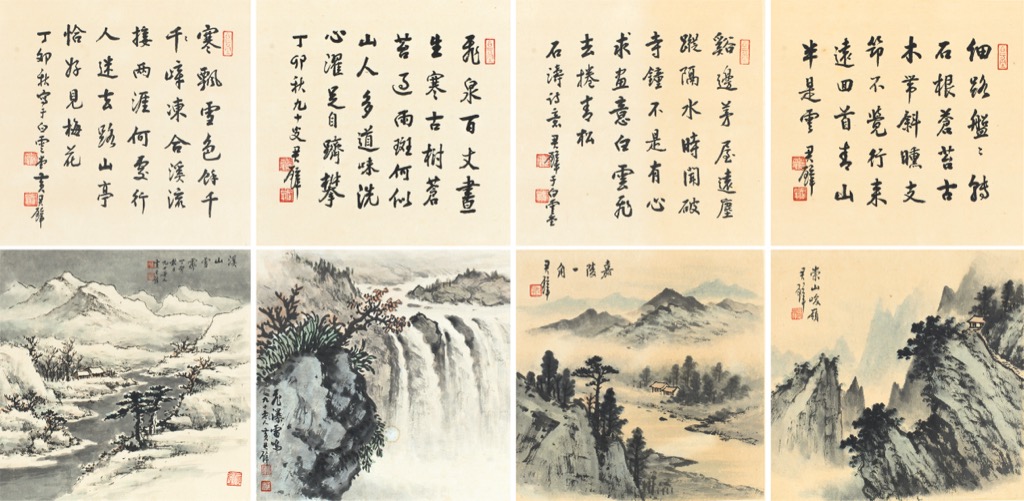 細路盤〻轉
石根蒼苔古
木帶斜曛支
笻不覺行來
遠回首青山
半是雲 君璧
谿邊茅屋遠塵
蹤隔水時聞破
寺鐘不是有心
求畫意白雲飛
去捲青松
石濤詩意 君璧 白雲堂
飛泉百丈晝
生寒古樹蒼
苔過雨斑何似
山人多道味洗
心濯足自躋攀
丁卯秋九十叟 君璧
寒飄雪色餘千
千嶂凍合溪流
接兩涯何處行
人迷去路山亭
恰好見梅花
丁卯秋寫于白雲堂 黃君璧
崇山峻嶺
君璧
嘉陵一角
君璧
飛瀑雷鳴
黃君璧
溪山雪霽